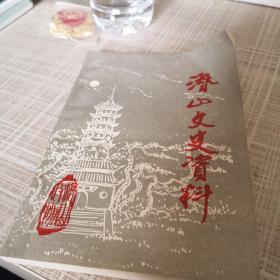 潜山文史资料